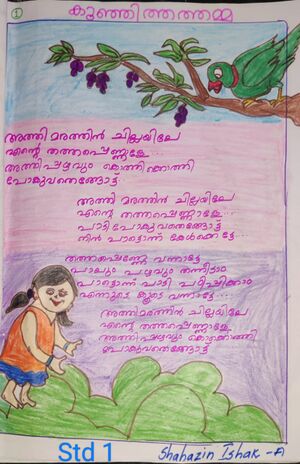 1
കുഞ്ഞിത്തത്തമ്മ
അത്തി മരത്തിൻ ചില്ലയിലേ
എന്റെ തത്തപ്പെണ്ണാളേ...
അത്തിപ്പഴവും കൊത്തിക്കൊത്തി
പോകുവതെങ്ങോട്ട്
അത്തി മരത്തിൻ ചില്ലയിലേ
എന്റെ തത്തപ്പെണ്ണാളേ...
പാടി പോകുവതെങ്ങോട്ട്
നിൻ പാട്ടൊന്ന് കേൾക്കട്ടെ...
തത്തപ്പെണ്ണേ വന്നാട്ടേ
പാലും പഴവും തന്നീടാം
പാട്ടൊന്ന് പാടി പഠിപ്പിക്കാം
എന്നുടെ കൂടെ വന്നാട്ടേ...
അത്തിമരത്തിൻ ചില്ലയിലേ
എന്റെ തത്തപ്പെണ്ണാളേ...
അത്തിപ്പഴവും കൊത്തിക്കൊത്തി
പോകുവതെങ്ങോട്ട്
Std 1
Shahazin Ishak -A